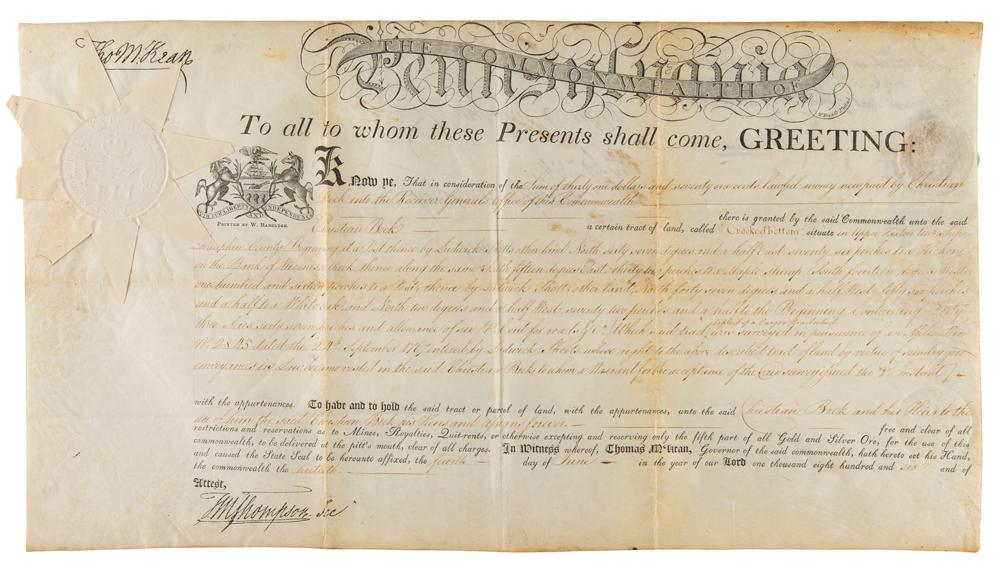 Tho M:Kean
THE COMMONWEALTH OF
Pennsylvania
To all to whom these Presents shall come, GREETING:
PRINTED BY W. HAMILTON.
Know ye, That in consideration of the Sum of thirty one dollars and seventy one cents lawful money now paid by Christian
Beck into the Receiver Generals office of this Commonwealth
there is granted by the said Commonwealth unto the said
Christian Beck a certain tract of land, called "Crooked bottom" situate in Upper Paxton township
Dauphin County Beginning at a Post thence by Ludwick Shotts other land North sixty seven degrees and a half East seventy six perches to a Hickory
on the Bank of Creek thence along the same South fifteen degrees East thirty two perches to a Maple stump South fourteen degrees West
one hundred and sixteen perches to a Post thence by Ludwick Shotts other land North forty seven degrees and a half West fifty six perches
and a half to a White oak and North two degrees and a half West seventy two perches and a half to the Beginning Containing forty
three Acres sixty seven perches and allowance of six P Cent for roads &c. Which said tract was surveyed in pursuance of an
No. 2845 dated the 24th September 1767 entered by Ludwick Shotts whose right to the above described tract of land by virtue of sundry
conveyances in Law became vested in the said Christian Beck to whom a Warrant for the acceptance of the said survey issued the instant
with the appurtenances. To have and to hold the said tract or parcel of land, with the appurtenances, unto the said Christian Beck and his Heirs to the
use of him the said Christian Beck his Heirs and Assigns forever. free and clear of all
restrictions and reservations as to Mines, Royalties, Quit-rents, or otherwise excepting and reserving only the fifth part of all Gold and Silver Ore, for the use of this
commonwealth, to be delivered at the pitt's mouth, clear of all charges. In Witness whereof, Thomas M'Kean, Governor of the said commonwealth, hath hereto set his Hand,
and caused the State Seal to be hereunto affixed, the fourth day of June in the year of our Lord one thousand eight hundred and six and of
the commonwealth the thirtieth
Attest,
TM Thompson Sec